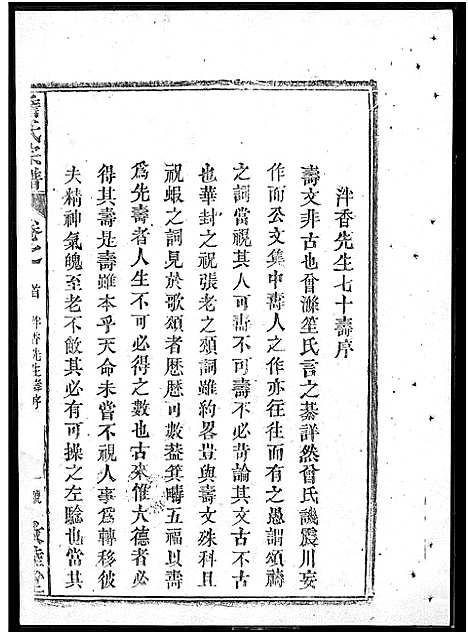 泮香先生七十壽序
壽文非古也曾滌笙氏言之綦詳然曾氏譏震川妄
作而公文集中壽人之作亦往往而有之愚謂頌禱
之詞當視其人可壽不可壽不必苛論其文古不古
也華封之祝張老之頌詞雖約畧豈與壽文殊科且
祝嘏之詞見於歌頌者歷歷可數葢箕疇五福以壽
爲先壽者人生不可必得之數也古來惟大德者必
得其壽是壽雖本乎天命未嘗不視人事爲轉移彼
夫精神氣魄至老不敝其必有可操之左騐也當其
氏宗譜
卷之
首
泮香先生壽序
一號